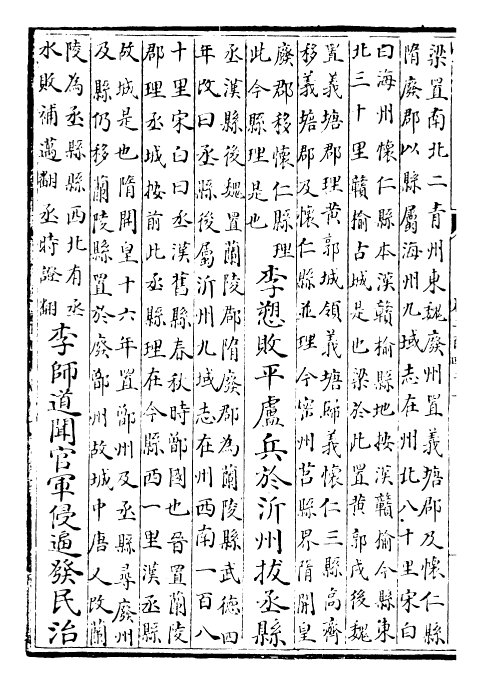 梁置南北二青州東魏廢州置義塘郡及懷仁縣
隋廢郡以縣屬海州九域志在州北八十里宋白
曰海州懷仁縣本漢贛榆縣地按漢贛榆今縣東
北三十里贛榆古城是也梁於此置黃郭戍後魏
置義塘郡理黃郭城領義塘歸義懷仁三縣高齊
移義塘郡及懷仁縣並理今密州莒縣界隋開皇
廢郡移懷仁縣理
此今縣理是也
李愬敗平盧兵於沂州拔丞縣
丞漢縣後魏置蘭陵郡隋廢郡為蘭陵縣武德四
年改曰丞縣後屬沂州九域志在州西南一百八
十里宋白曰丞漢舊縣春秋時鄫國也晉置蘭陵
郡理丞城按前此丞縣理在今縣西一里漢丞縣
故城是也隋開皇十六年置鄫州及丞縣尋廢州
及縣仍移蘭陵縣置於廢鄫州故城中唐人改蘭
陵為丞縣縣西北有丞
水敗補邁翻丞時證翻
李師道聞官軍侵逼發民治